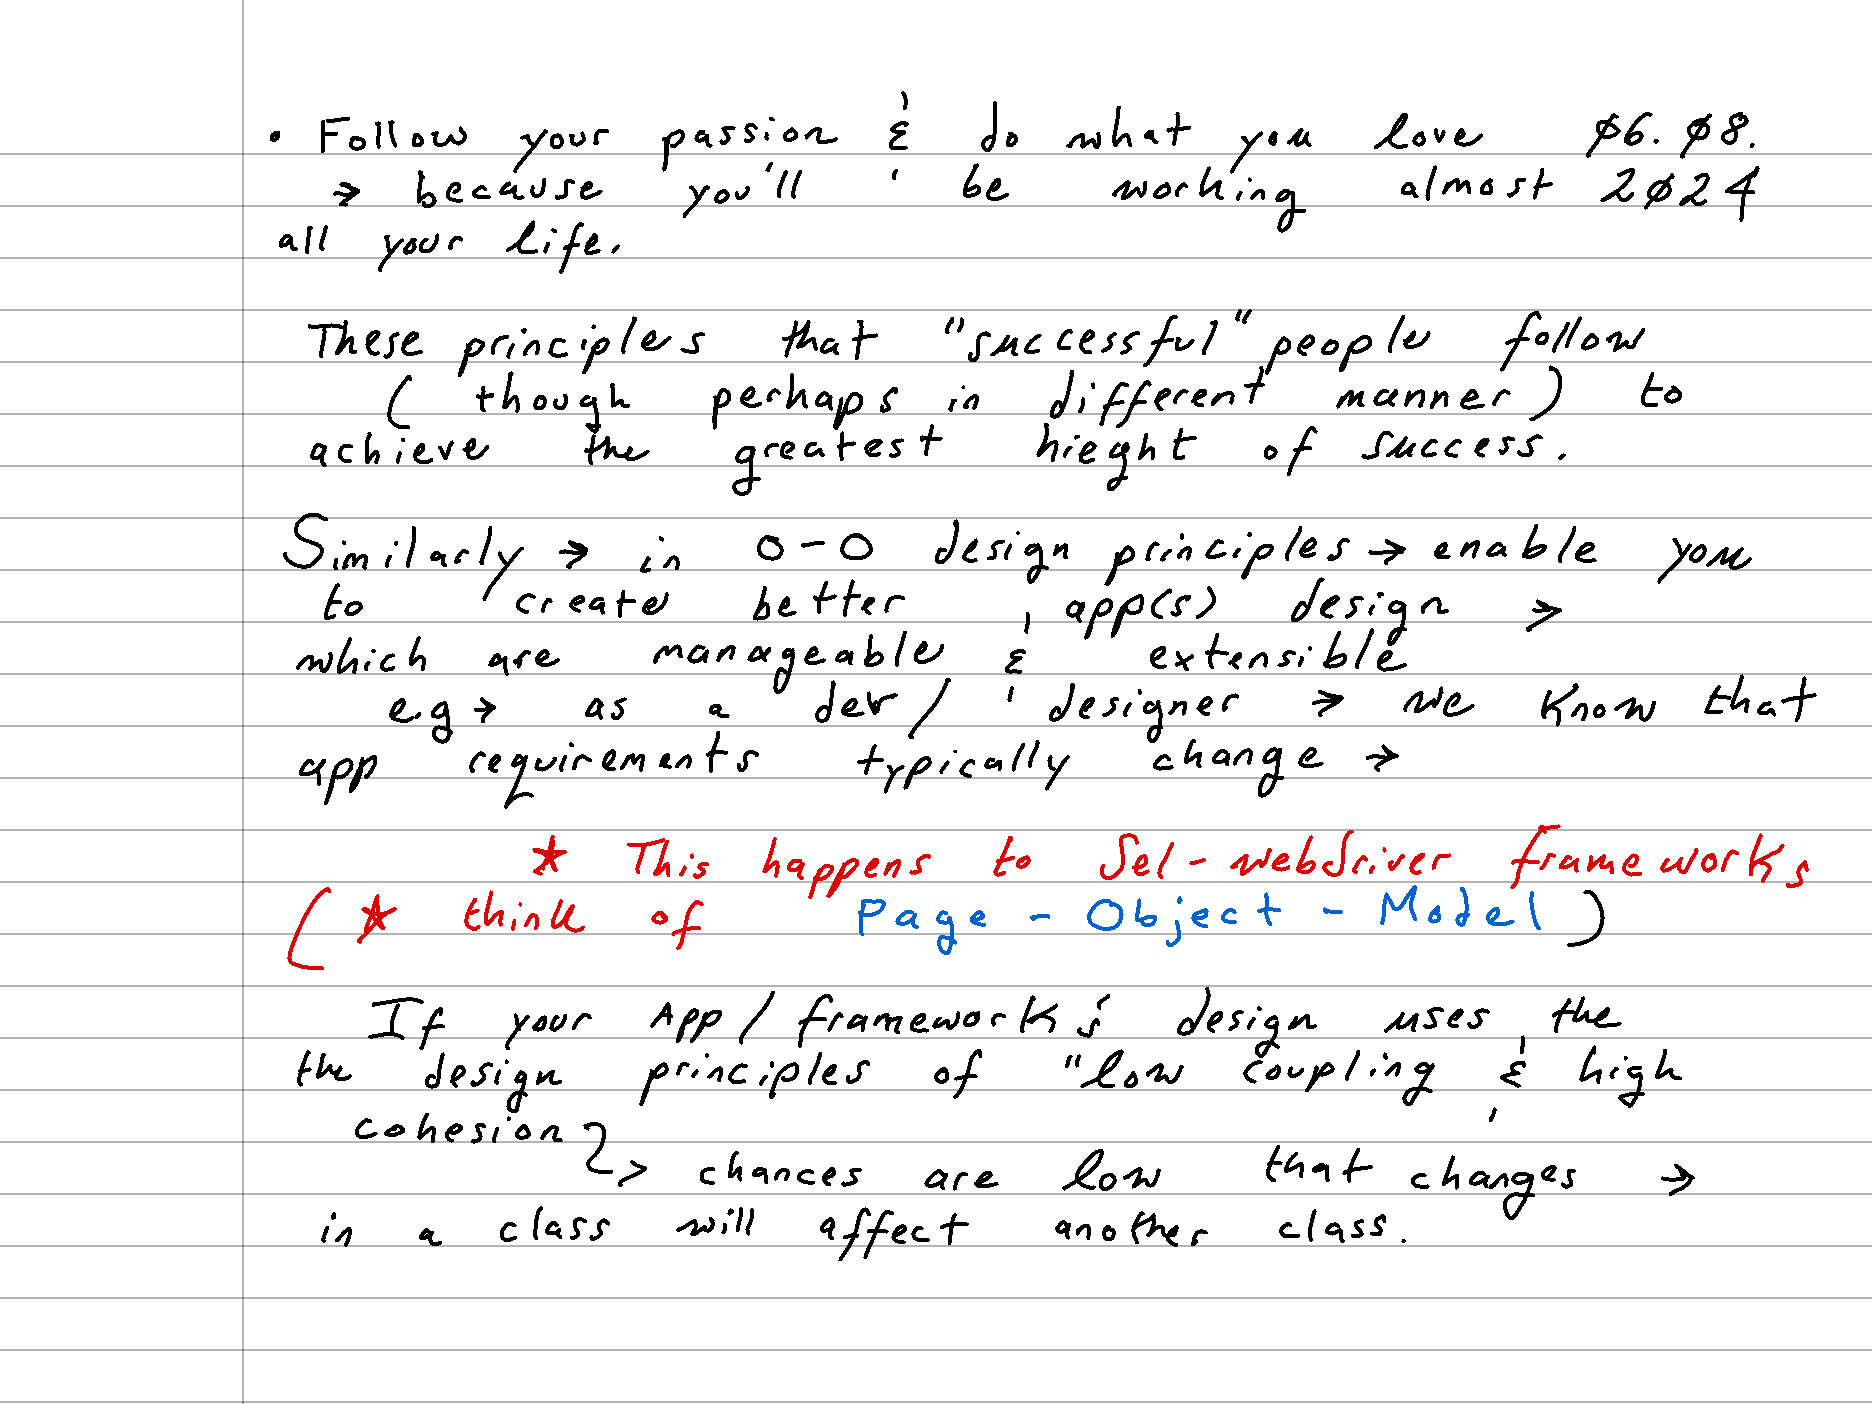 • Follow your passion & do what you love Ø6. Ø8.
→ because you'll be working almost 2Ø24
all your life.
These principles that "successful" people follow
( though perhaps in different manner) to
achieve the greatest hieght of success.
Similarly → in O-O design principles → enable you
to create better app(s) design →
which are manageable & extensible
e.g → as a dev / designer → we know that
app requirements typically change →
* This happens to Sel-webdriver frameworks
( * think of Page - Object - Model )
If your App / framework's design uses the
the design principles of "low coupling & high
cohesion → chances are low that changes →
in a class will affect another class.